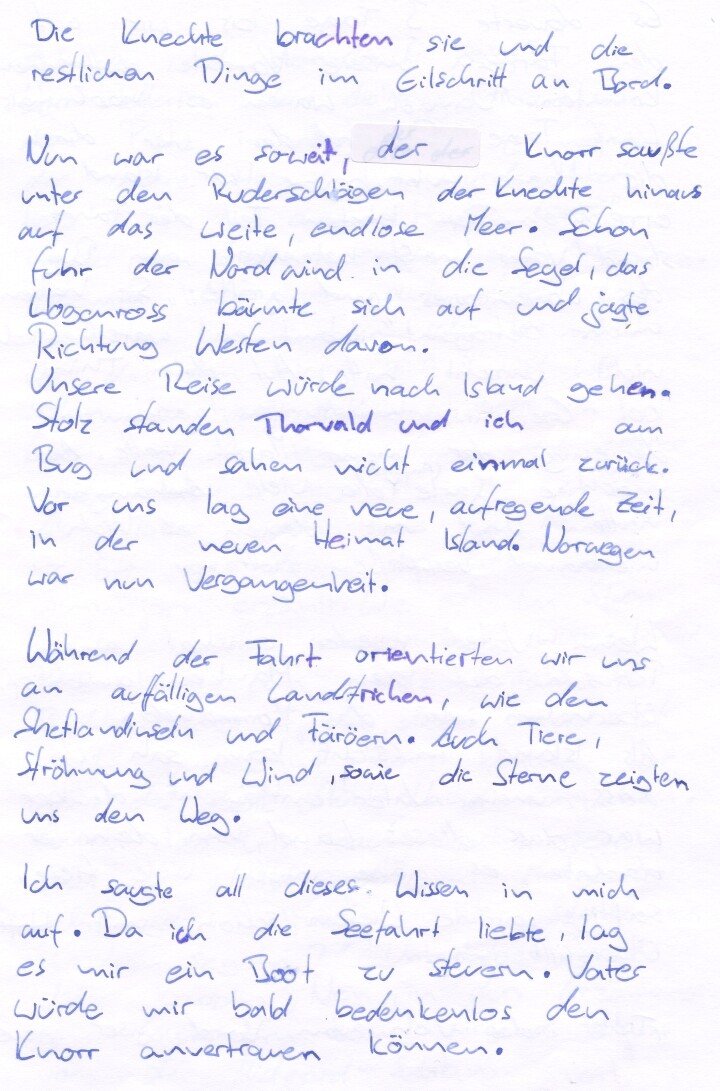 Die Knechte brachten sie und die
restlichen Dinge im Eilschritt an Bord.
Nun war es soweit, der Knorr saußte
unter den Ruderschlägen der Knechte hinaus
auf das weite, endlose Meer. Schon
fuhr der Nordwind in die Segel, das
Wogenross bäumte sich auf und jagte
Richtung Westen davon.
Unsere Reise würde nach Island gehen.
Stolz standen Thorvald und ich am
Bug und sahen nicht einmal zurück.
Vor uns lag eine neue, aufregende Zeit,
in der neuen Heimat Island. Norwegen
war nun Vergangenheit.
Während der Fahrt orientierten wir uns
an auffälligen Landstrichen, wie den
Shetlandinseln und Färöern. Auch Tiere,
Ströhmung und Wind, sowie die Sterne zeigten
uns den Weg.
Ich saugte all dieses Wissen in mich
auf. Da ich die Seefahrt liebte, lag
es mir ein Boot zu steuern. Vater
würde mir bald bedenkenlos den
Knorr anvertrauen können.